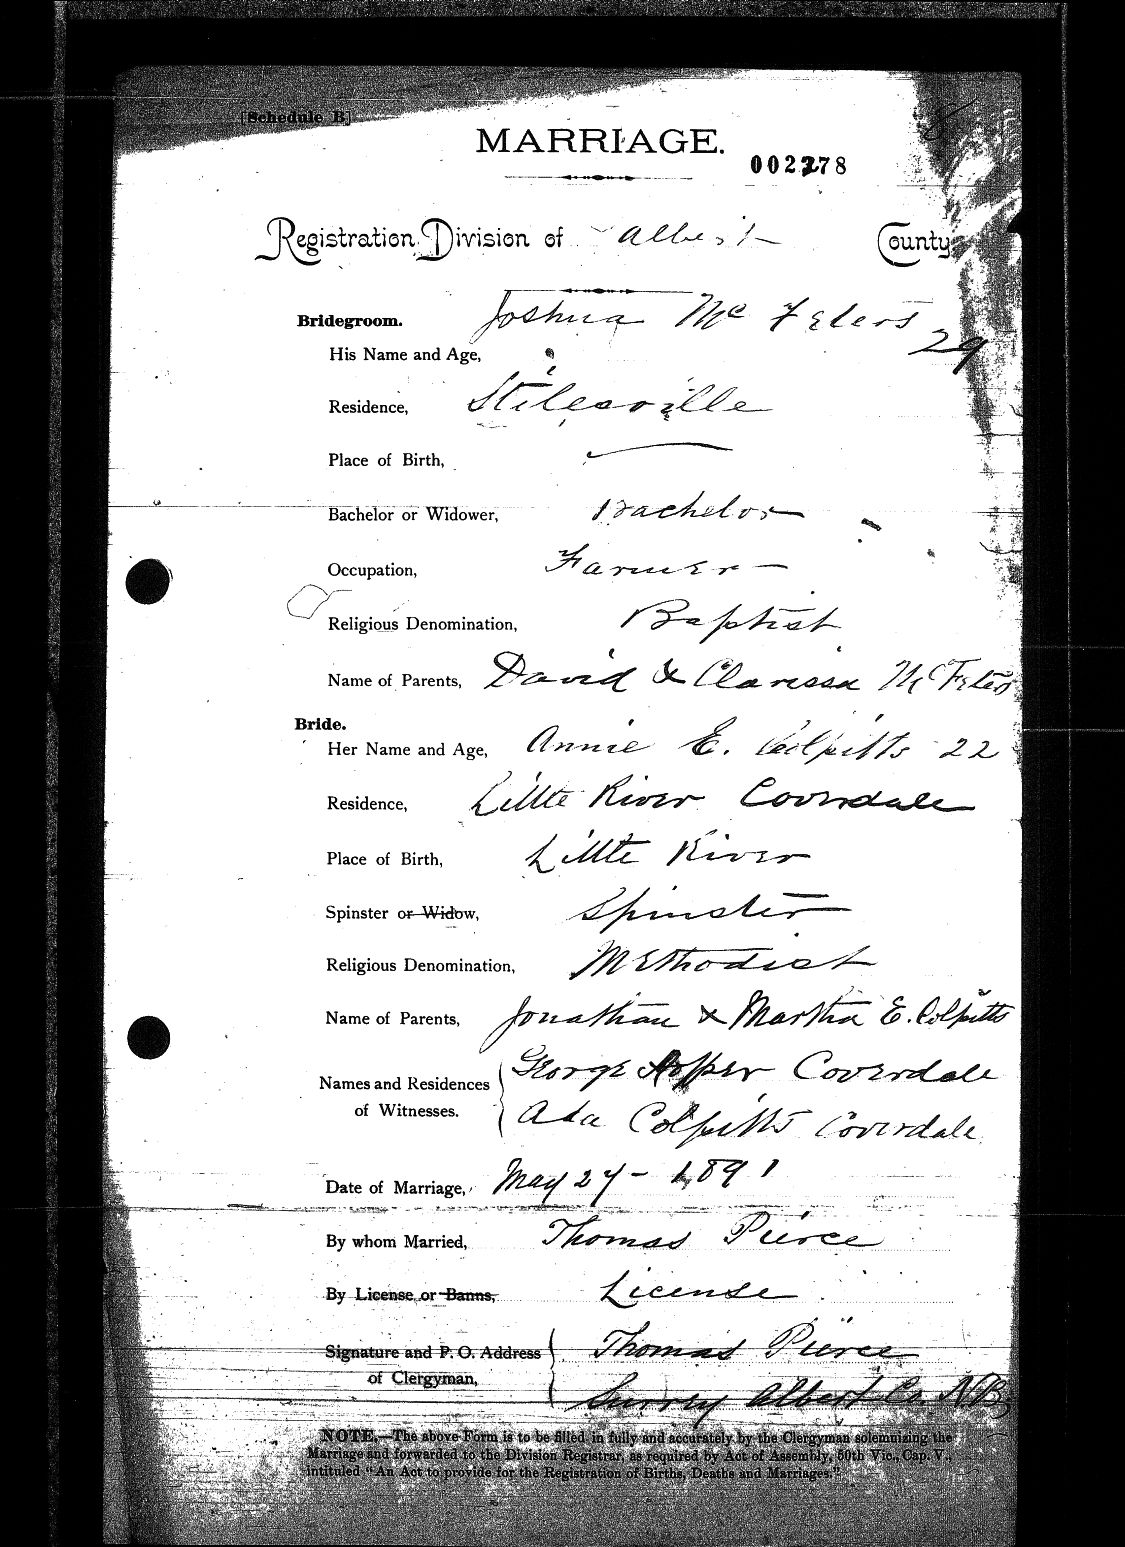 [Schedule B]
MARRIAGE.
002278
Registration Division of Albert County
Bridegroom. Joshua McFeters 29
His Name and Age,
Residence, Stilesville
Place of Birth,
Bachelor or Widower, Bachelor
Occupation, Farmer
Religious Denomination, Baptist
Name of Parents, David & Clarissa McFeters
Bride.
Her Name and Age, Annie E. Colpitts 22
Residence, Little River Coverdale
Place of Birth, Little River
Spinster or Widow, Spinster
Religious Denomination, Methodist
Name of Parents, Jonathan & Martha E. Colpitts
Names and Residences George Hopper Coverdale
of Witnesses. Ada Colpitts Coverdale
Date of Marriage, May 27 - 1891
By whom Married, Thomas Pierce
By License or Banns, License
Signature and P. O. Address Thomas Pierce
of Clergyman, Surrey Albert Co. N.B.
NOTE.—The above Form is to be filled in fully and accurately by the Clergyman solemnizing the
Marriage and forwarded to the Division Registrar, as required by Act of Assembly, 50th Vic., Cap. V.,
intituled "An Act to provide for the Registration of Births, Deaths and Marriages."